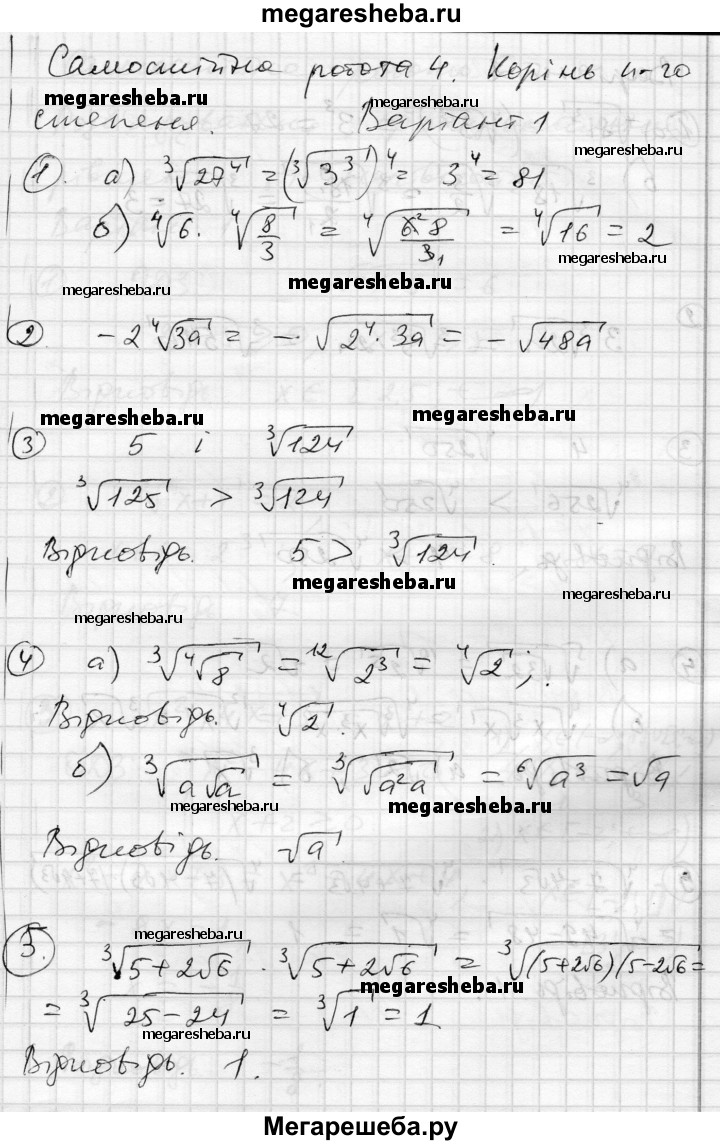 megaresheba.ru
Самостійна робота 4. Корінь n-го
megaresheba.ru megaresheba.ru
степеня. Варіант 1
megaresheba.ru
1. а) ∛(27⁴) = (∛(3³))⁴ = 3⁴ = 81
б) ⁴√6 · ⁴√(8/3) = ⁴√(6² 8/3₁) = ⁴√16 = 2
megaresheba.ru
megaresheba.ru megaresheba.ru
2 -2⁴√(3a) = -√(2⁴·3a) = -√(48a)
megaresheba.ru megaresheba.ru
3 5 і ∛124
∛125 > ∛124
Відповідь. 5 > ∛124.
megaresheba.ru
megaresheba.ru megaresheba.ru
4 а) ∛(⁴√8) = ¹²√(2³) = ⁴√2;.
Відповідь. ⁴√2.
б) ∛(a√a) = ∛(√(a²a)) = ⁶√(a³) = √a
megaresheba.ru megaresheba.ru
Відповідь. √a.
megaresheba.ru
5. ∛(5+2√6) · ∛(5+2√6) = ∛((5+2√6)(5-2√6)) =
megaresheba.ru
= ∛(25-24) = ∛1 = 1
megaresheba.ru
Відповідь. 1.
megaresheba.ru
Мегарешеба.ру